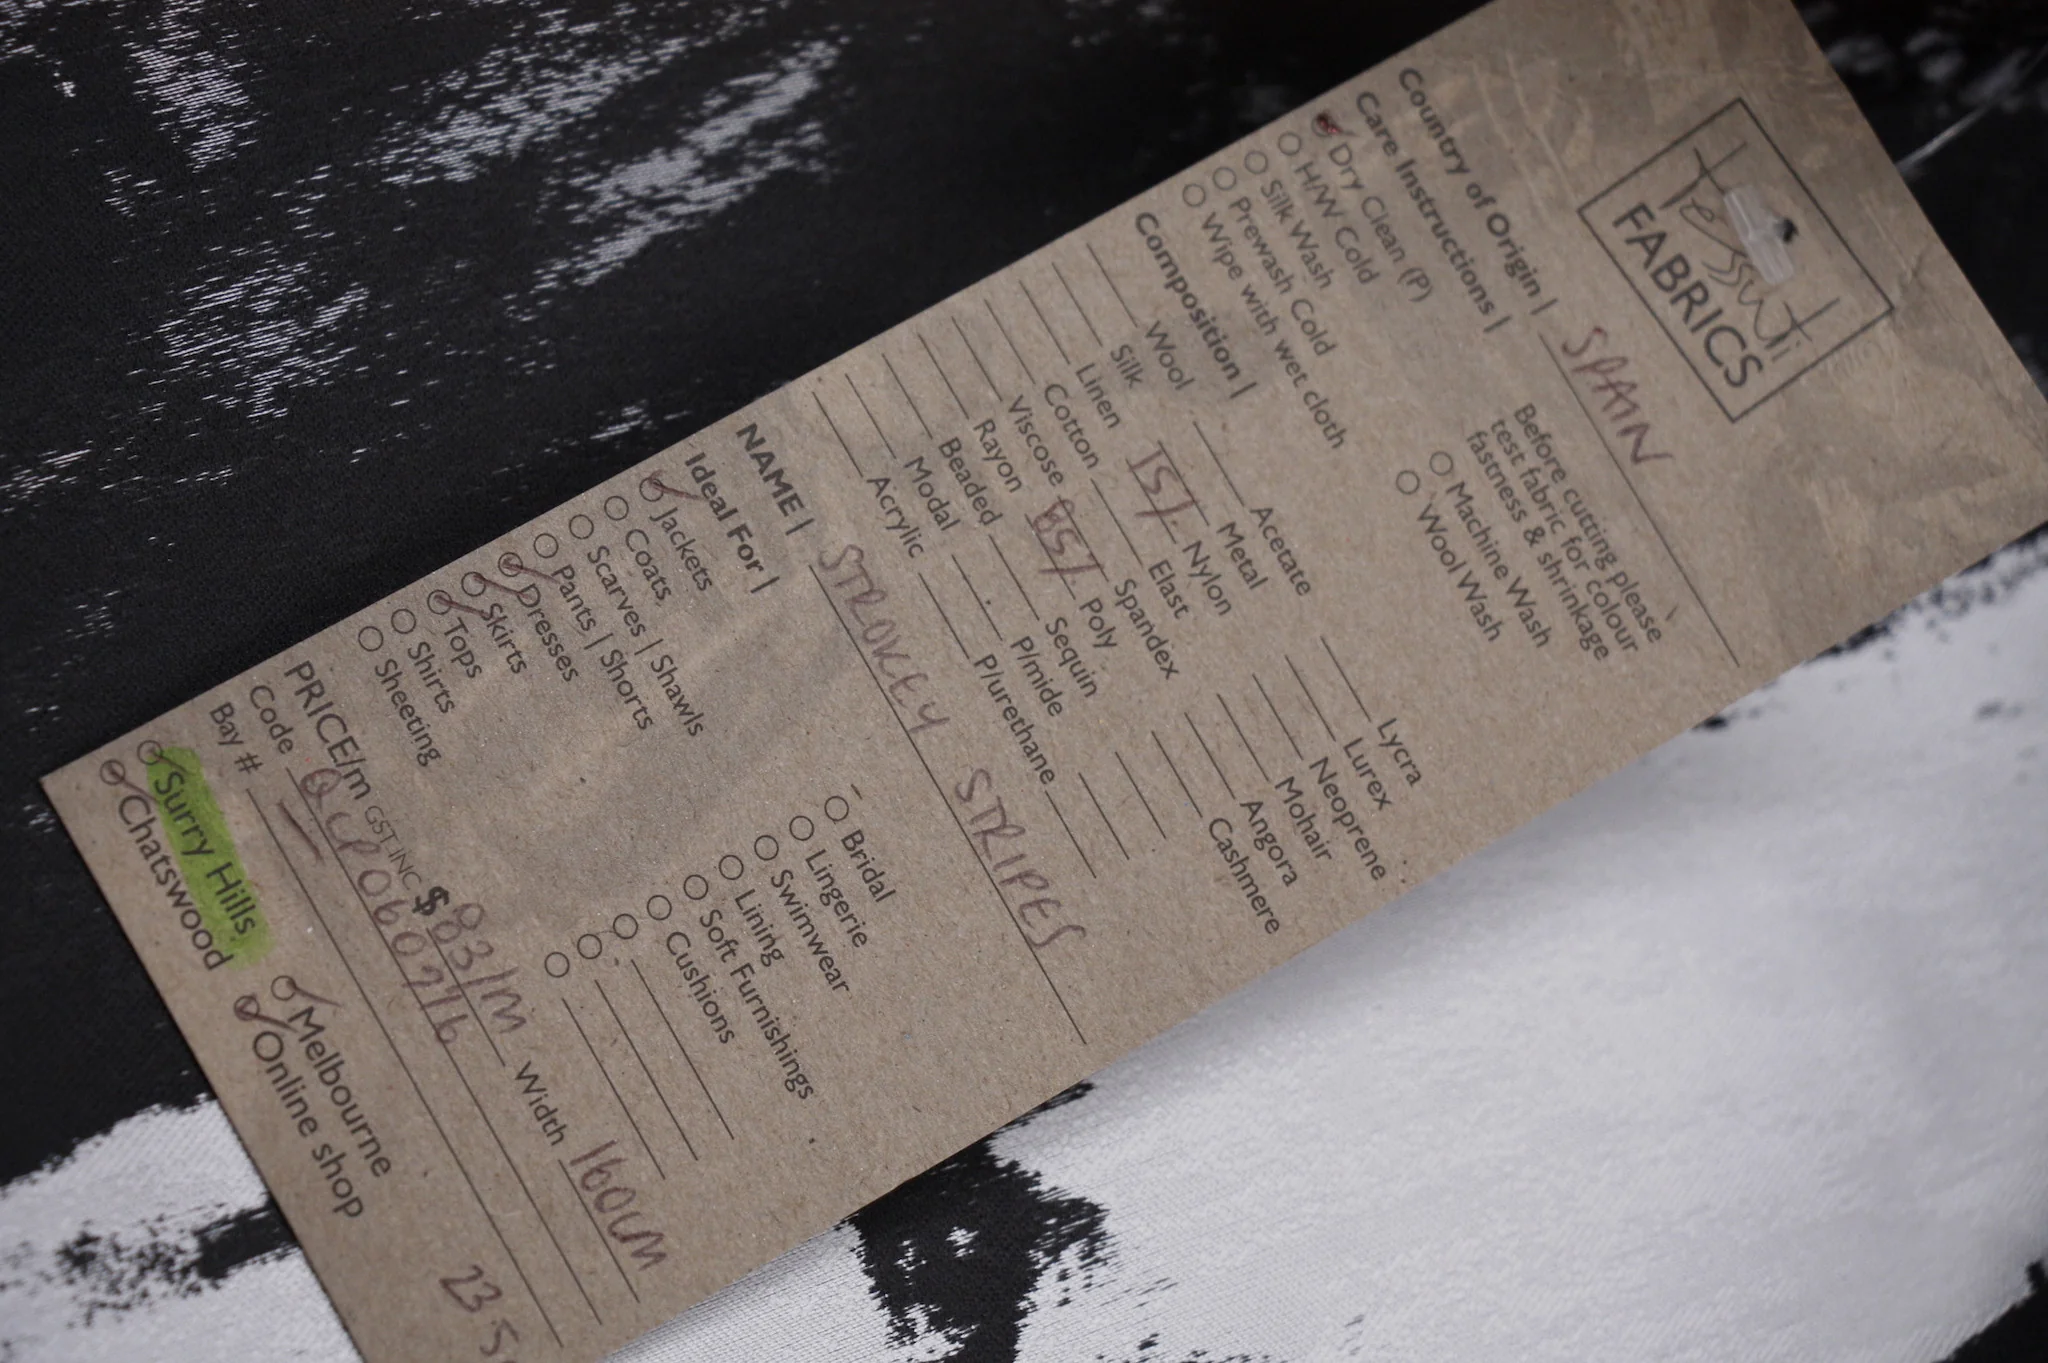 Tessuti
FABRICS
Country of Origin | SPAIN
Care Instructions |
Before cutting please
test fabric for colour
fastness & shrinkage
Dry Clean (P)
H/W Cold Machine Wash
Silk Wash Wool Wash
Prewash Cold
Wipe with wet cloth
Composition |
Wool Acetate Lycra
Silk Metal Lurex
Linen 15% Nylon Neoprene
Cotton Elast Mohair
Viscose Spandex Angora
Rayon 85% Poly Cashmere
Beaded Sequin
Modal P/mide
Acrylic P/urethane
NAME | STROKEY STRIPES
Ideal For |
Jackets Bridal
Coats Lingerie
Scarves | Shawls Swimwear
Pants | Shorts Lining
Dresses Soft Furnishings
Skirts Cushions
Tops
Shirts
Sheeting
PRICE/m GST INC $83/m Width 160cm
Code
Bay #
Surry Hills Melbourne
Chatswood Online shop